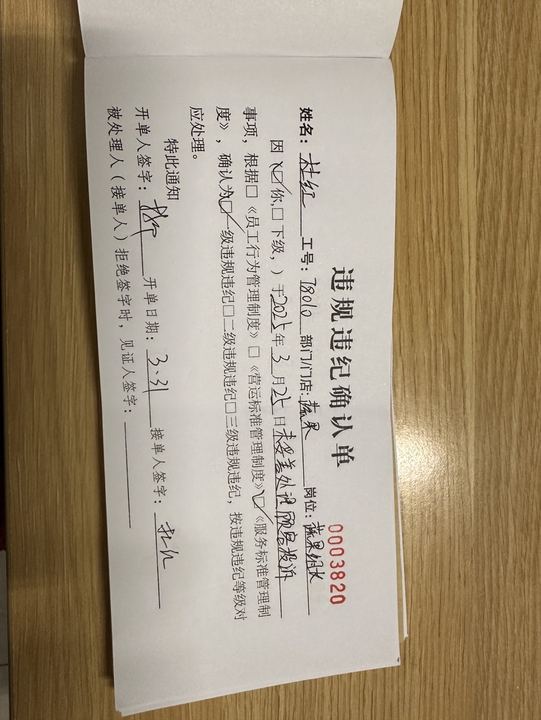 违规违纪确认单
0003820
姓名：杜红 工号：78010 部门/门店：蔬果 岗位：蔬果组长
因（☑你，□下级，）于2025年3月25日未妥善处理顾客投诉
事项，根据□《员工行为管理制度》□《营运标准管理制度》☑《服务标准管理制
度》，确认为☑一级违规违纪□二级违规违纪□三级违规违纪，按违规违纪等级对
应处理。
特此通知
开单人签字： 开单日期：3.31 接单人签字：杜红
被处理人（接单人）拒绝签字时，见证人签字：